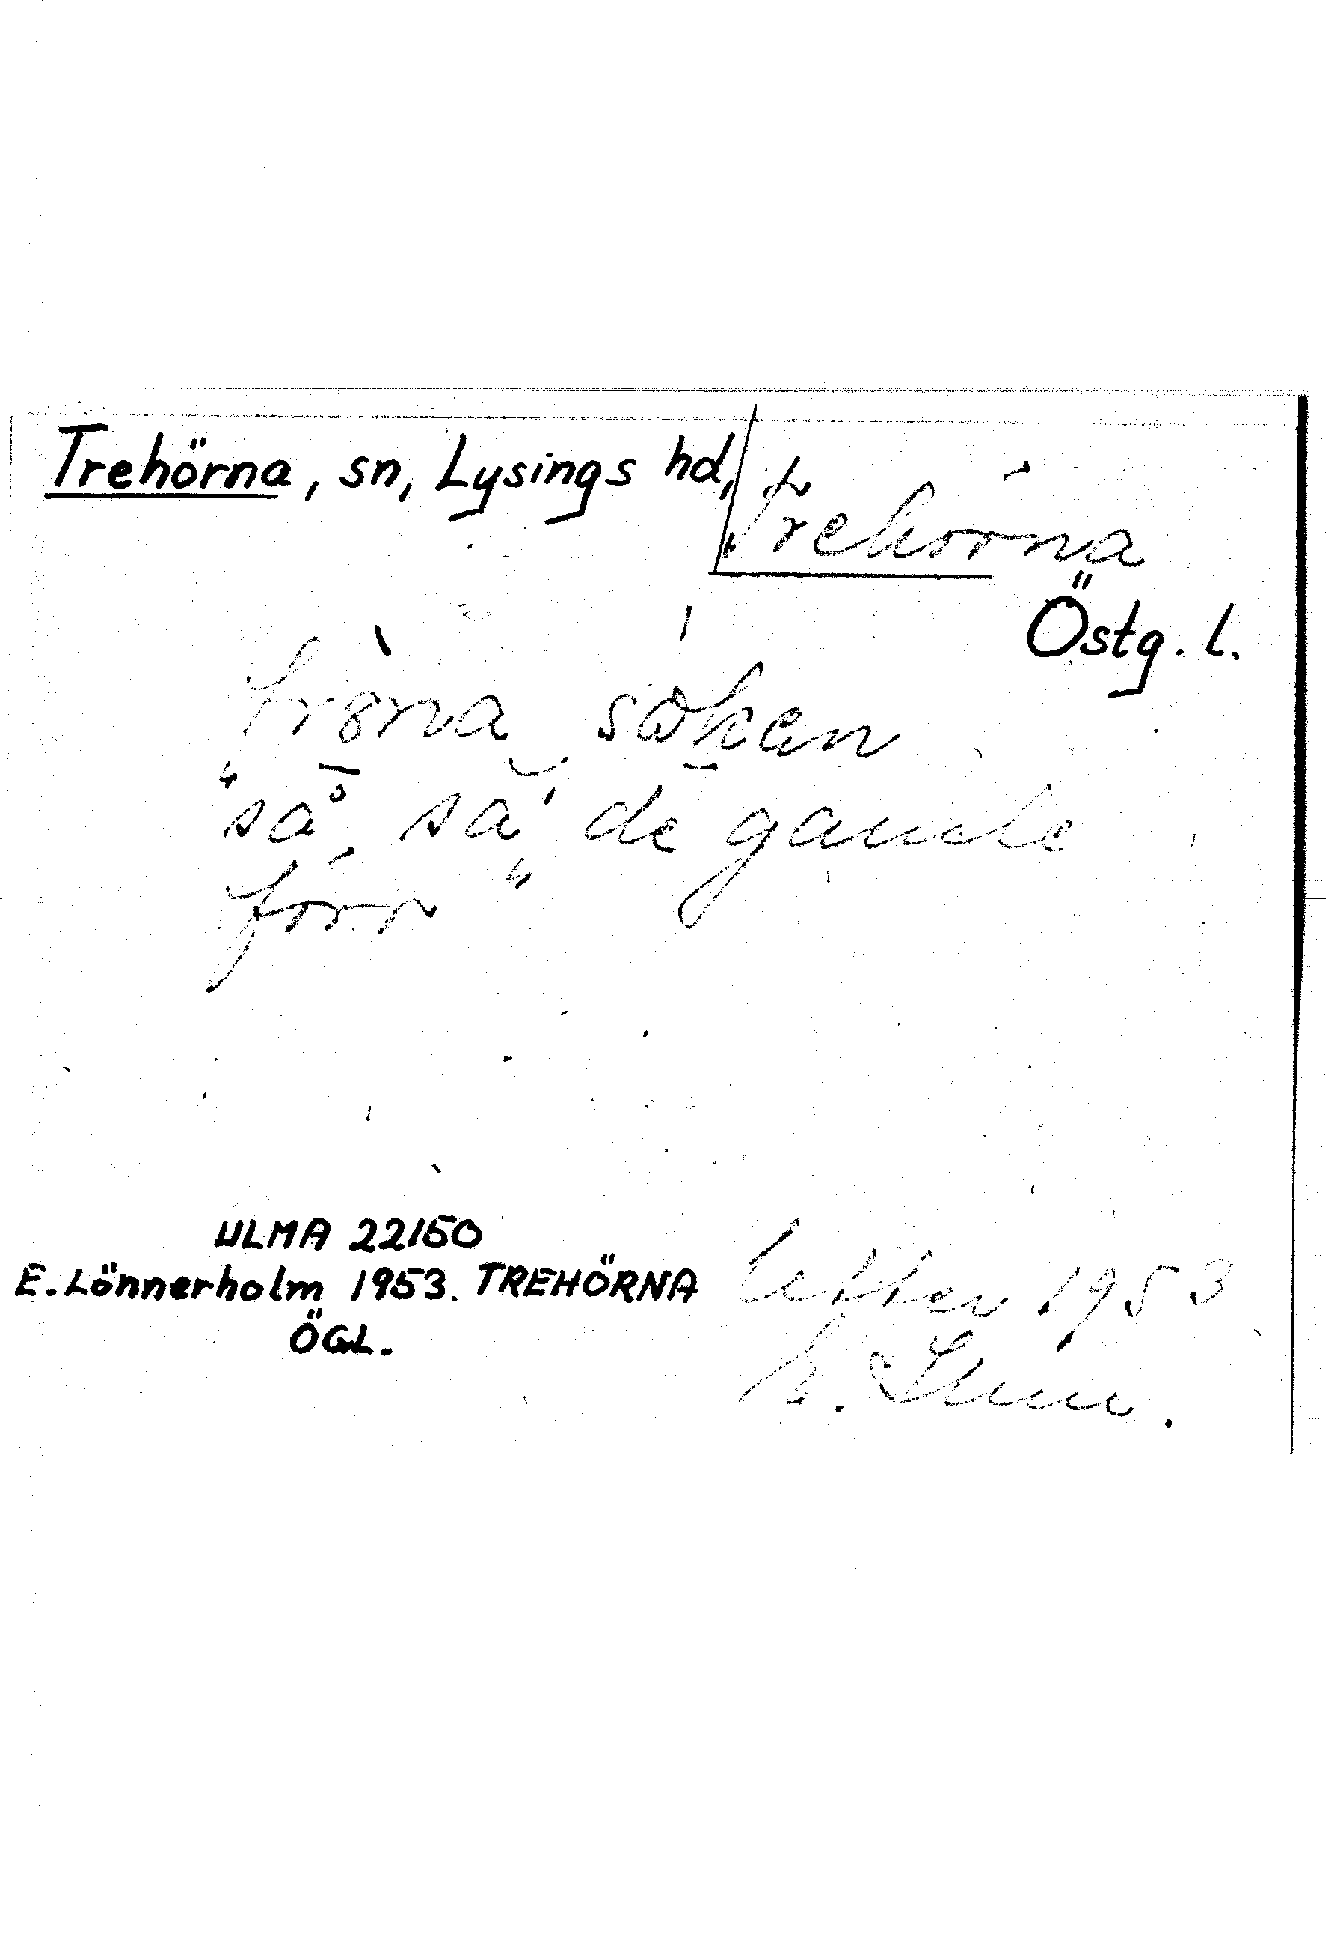 Trehörna, sn, Lysings hd,
Trehörna
Östg. l.
tröna, såken
"så, sa' de gamle
förr"
ULMA 22150
E. Lönnerholm 1953. TREHÖRNA
ÖGL.
1953